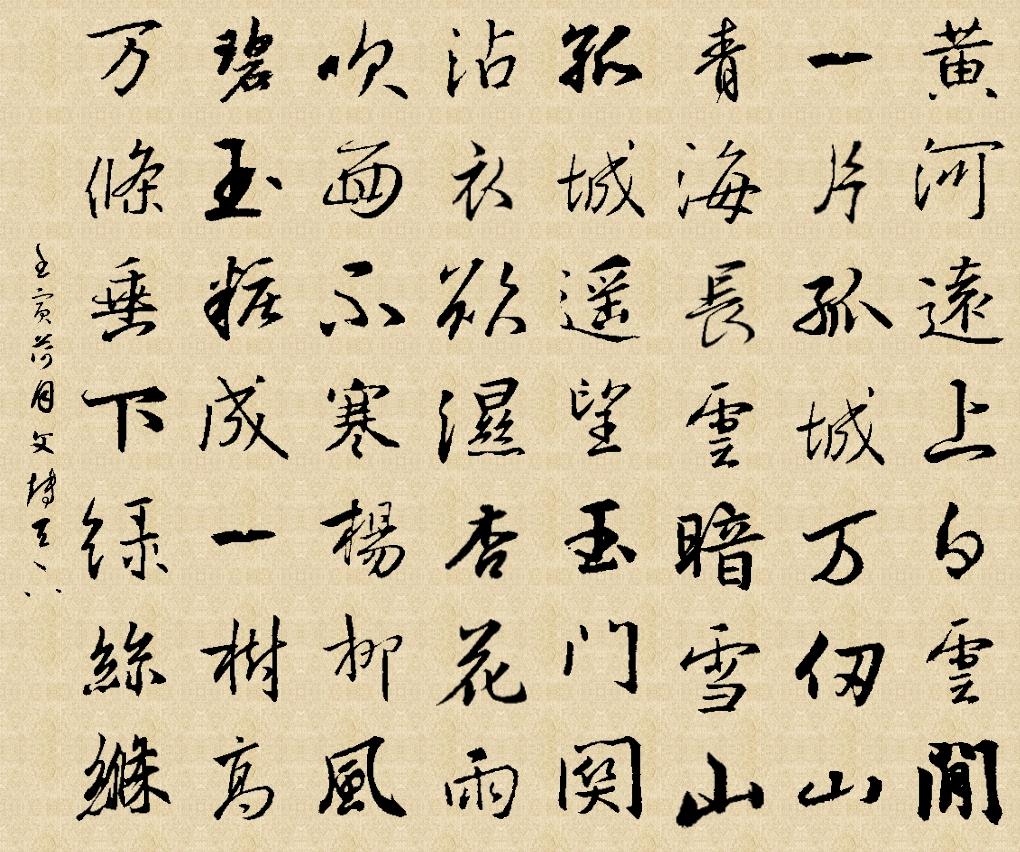 黄河遠上白雲間
一片孤城万仞山
青海長雲暗雪山
孤城遥望玉门関
沾衣欲濕杏花雨
吹面不寒楊柳風
碧玉粧成一樹高
万條垂下绿絲縧
壬寅荷月文博